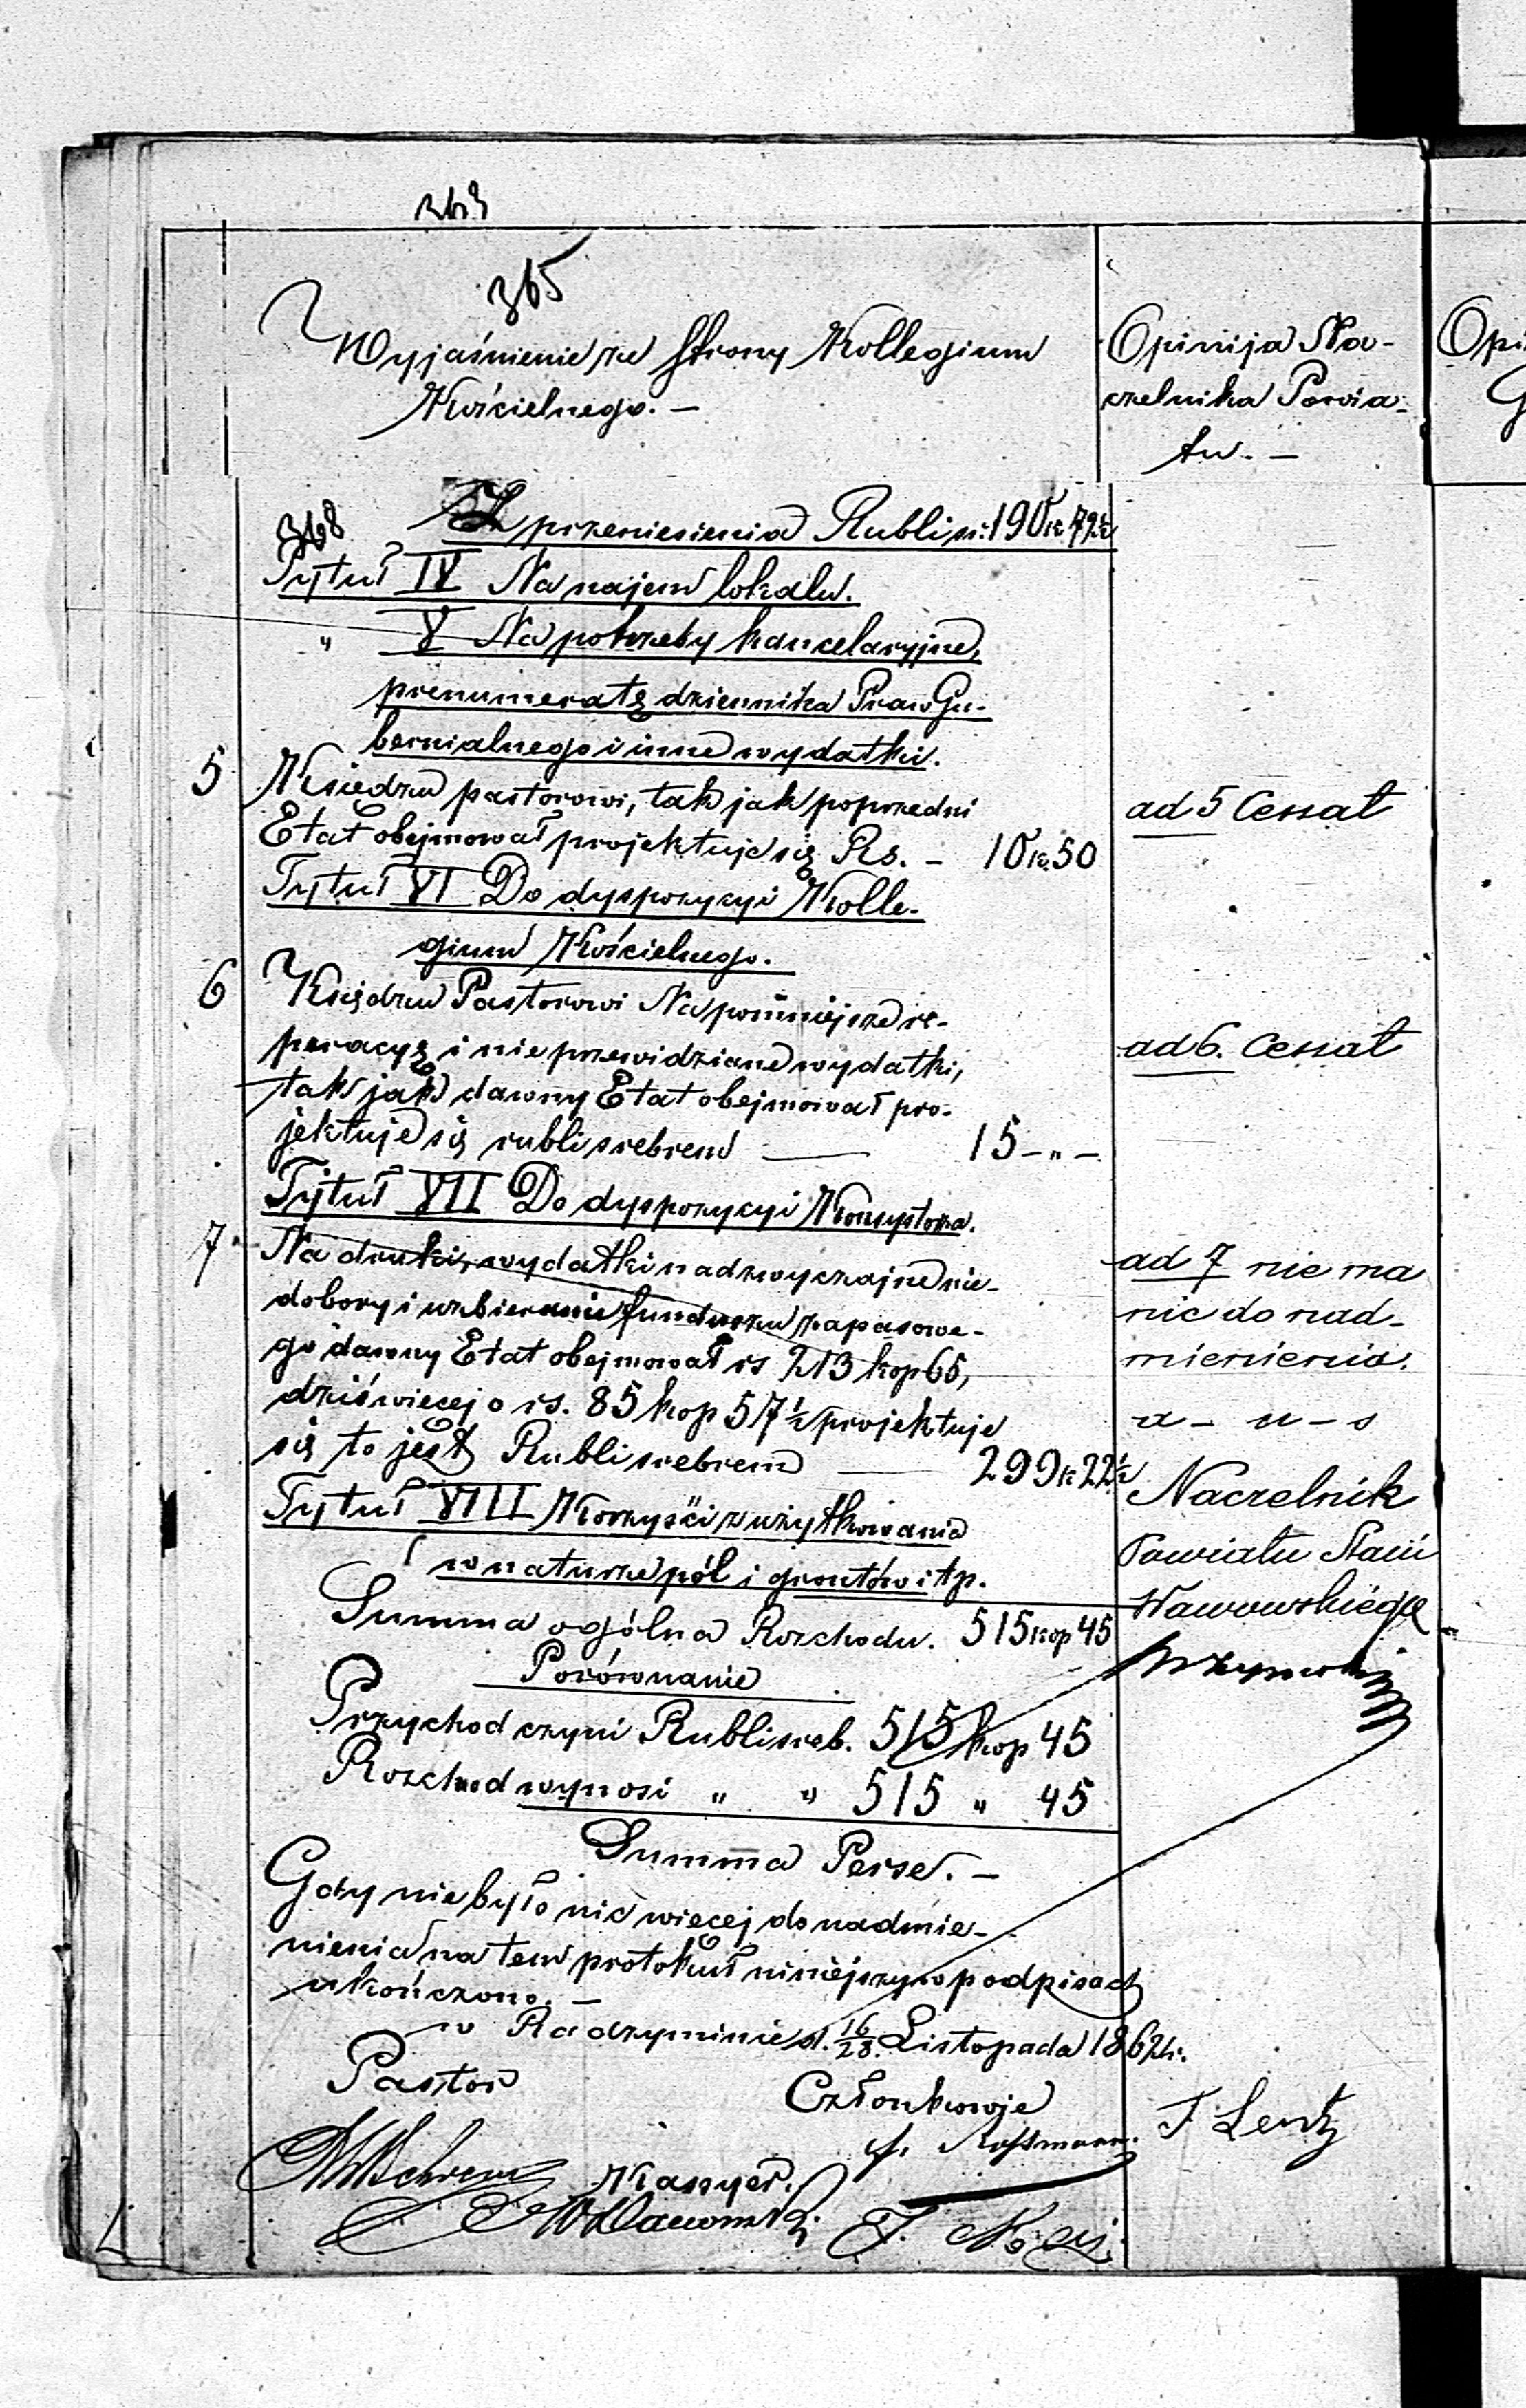 363
365
Wyjaśnienie ze strony Kollegium
Kościelnego. —
Opinija Na-
czelnika Powia-
tu. —
Opi
G
368
Z przeniesienia Rubli sr: 190 k. 72½
Tytuł IV Na najem lokalu.
" V Na potrzeby kancelaryjne,
prenumeratę dziennika Praw Gu-
bernialnego i inne wydatki.
5 Księdzu pastorowi, tak jak poprzedni
Etat obejmował projektuje się Rs. – 10 k. 50
ad 5 Cessat
Tytuł VI Do dyspozycyi Kolle-
gium Kościelnego.
6 Księdzu Pastorowi Na pomniejsze re-
peracyę i nieprzewidziane wydatki,
tak jak dawny Etat obejmował pro-
jektuje się rubli srebrem — 15 – " –
ad 6. Cessat
Tytuł VII Do dyspozycyi Konsystorza.
7 Na druki, wydatki nadzwyczajne nie-
dobory i uzbieranie funduszu zapasowe-
go dawny Etat obejmował rs 213 kop 65,
dziś więcej o rs. 85 kop 57½ projektuje
się to jest Rubli srebrem — 299 k 22½
ad 7 nie ma
nic do nad-
mienienia.
a – u – s
Naczelnik
Powiatu Stani
sławowskiego
Tytuł VIII Korzyści z użytkowania
w naturze pól i gruntów i tp.
Summa ogólna Rozchodu. 515 kop 45
Porównanie
Przychod czyni Rubli sreb. 515 kop 45
Rozchod wynosi " " 515 " 45
Summa Perse. —
Gdy nie było nic więcej do nadmie-
nienia na tem protokuł niniejszy w podpisach
ukończono. —
w Radzyminie d. 16/28. Listopada 1862 r.
Pastor
Członkowie
J. Lentz
Kassyer.